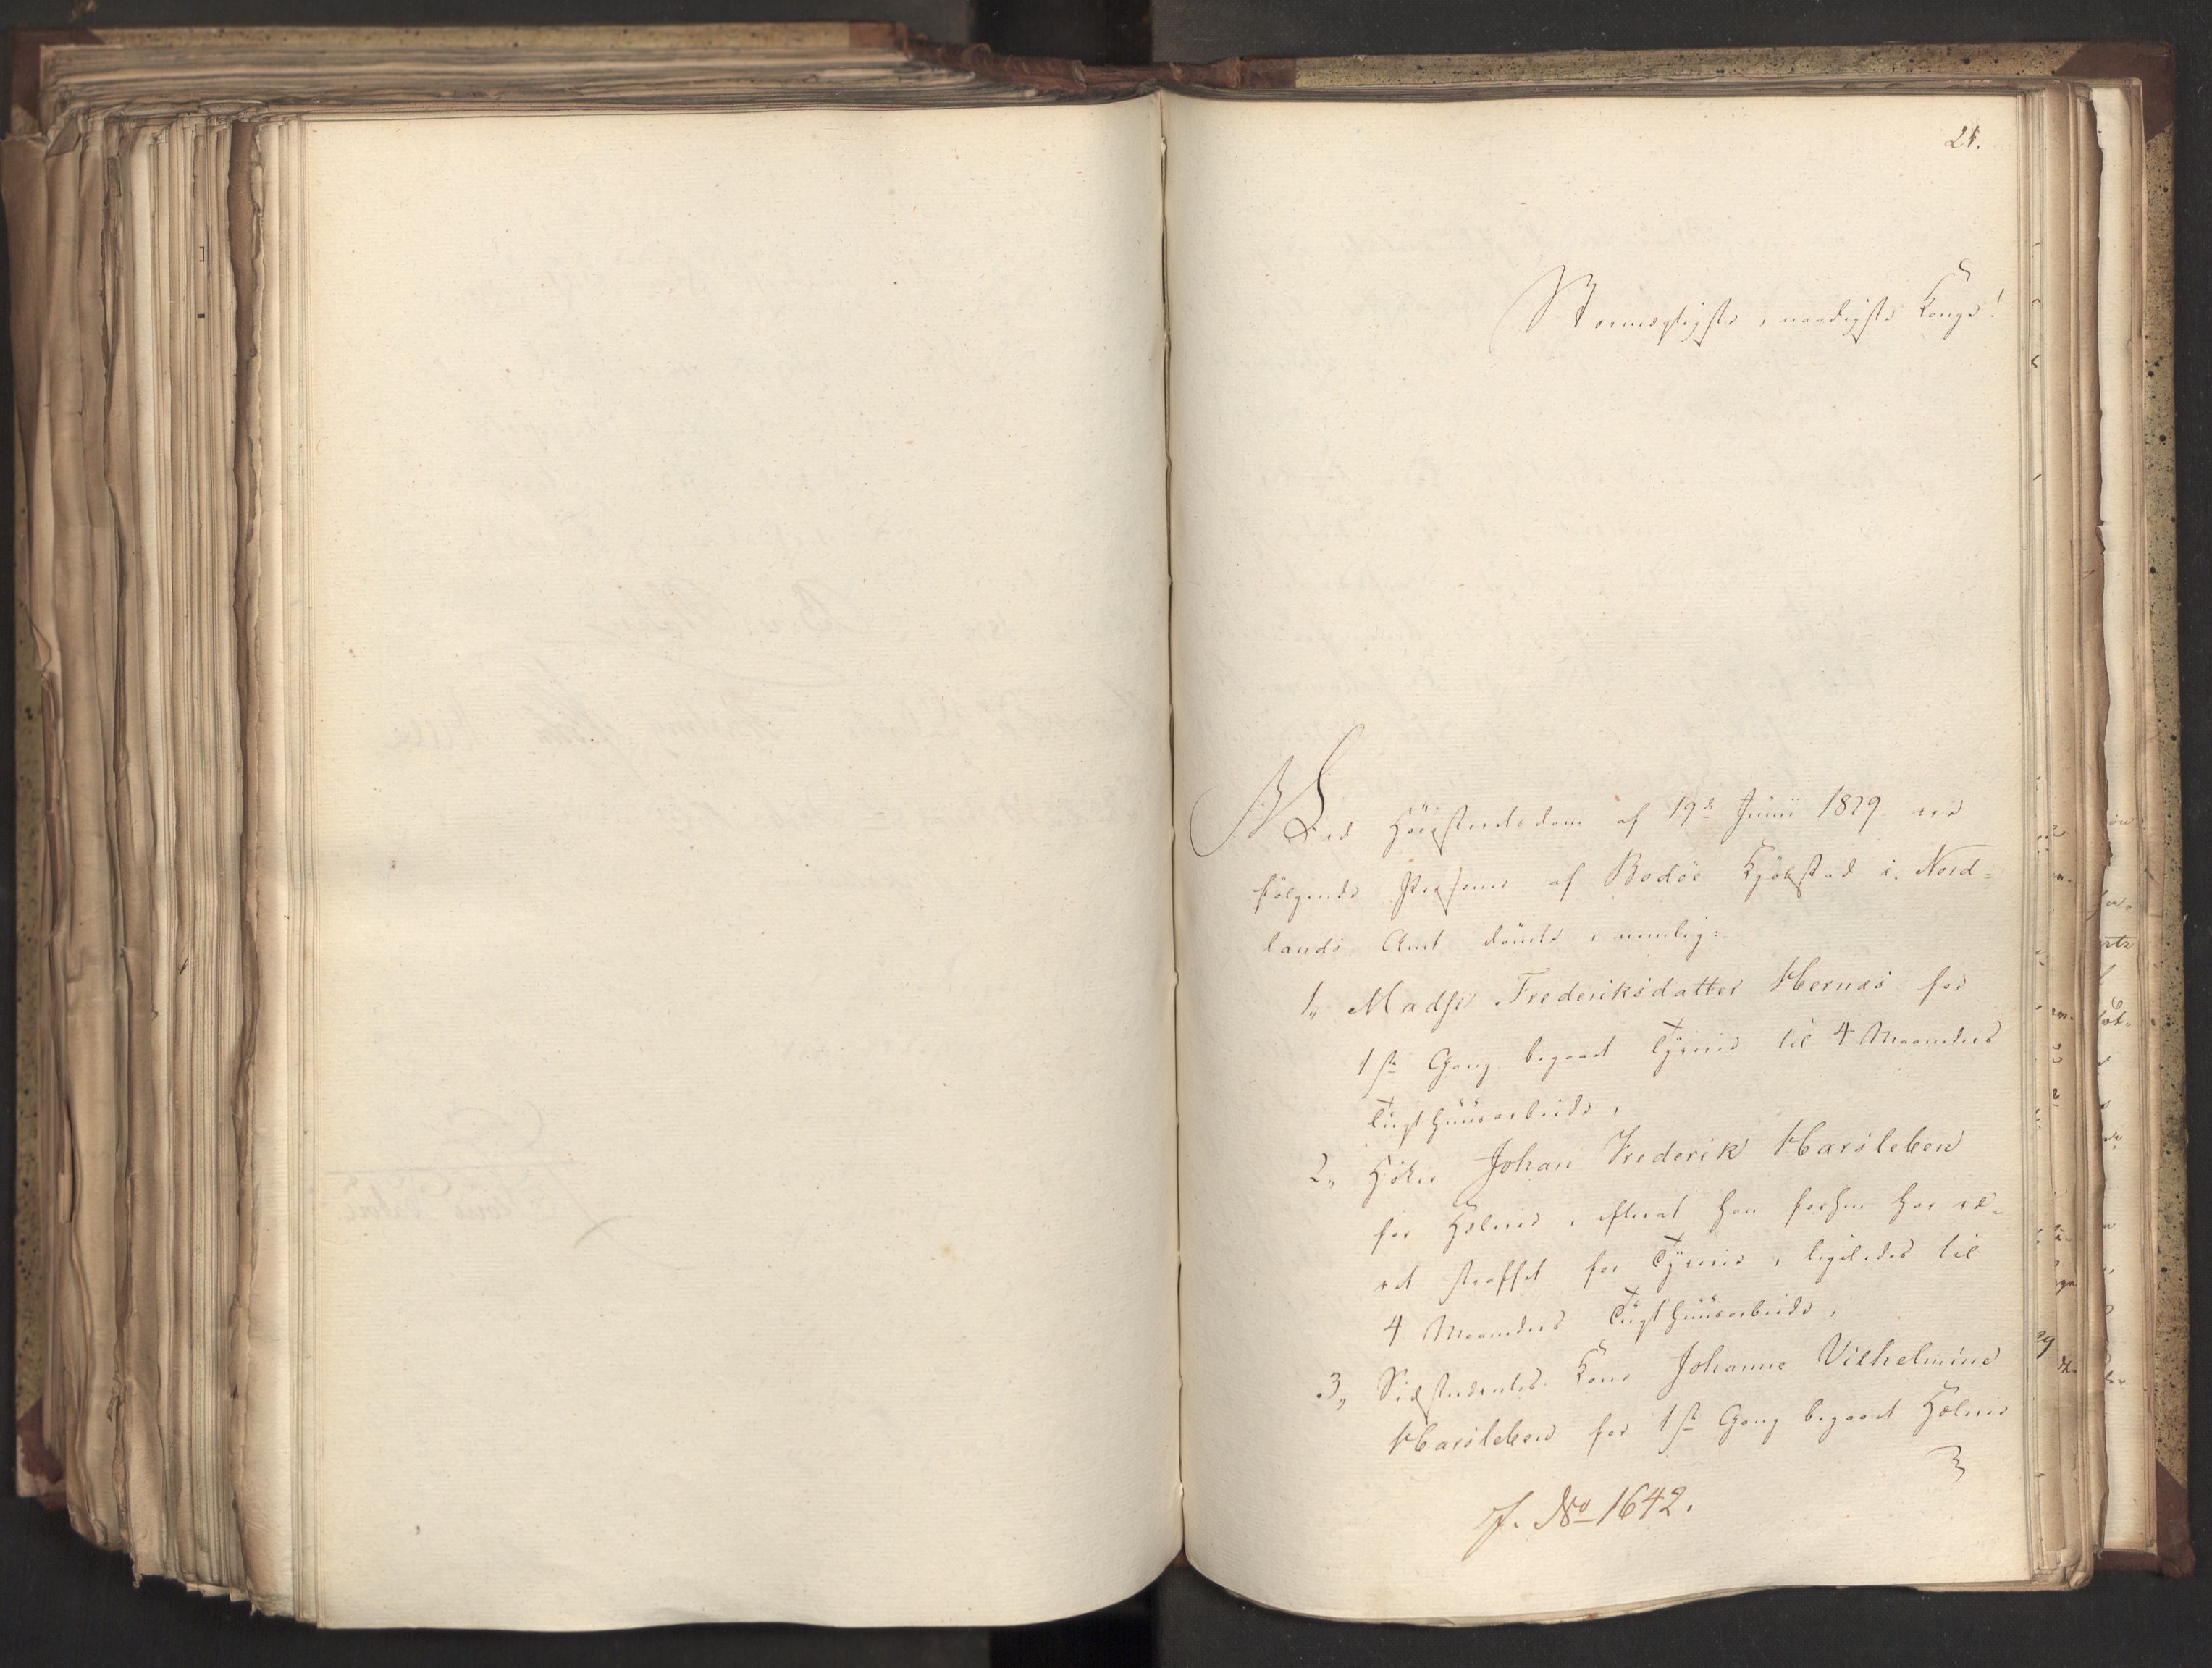 21.
Stormægtigste, naadigste Konge!
Ved Høiesteretsdom af 19de Junii 1829 ere
følgende Personer af Bodøe Kjøbstad i Nord=
lands Amt dömte, nemlig:
1, Madse Frederiksdatter Hernæs for
1ste Gang begaaet Tyverie til 4 Maaneders
Tugthuusarbeide,
2, Höker Johan Frederik Harsleben
for Hæleri, efterat han forhen har væ=
ret straffet for Tyverie, ligeledes til
4 Maaneders Tugthuusarbeide,
3, Sidstnævntes Kone Johanne Vilhelmine
Harsleben for 1ste Gang begaaet Hæleri
J. No 1642.